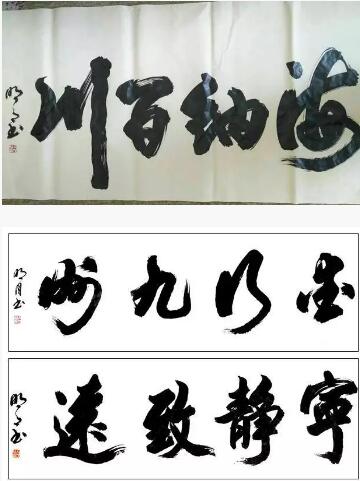 海纳百川
明月书
墨行九州
明月书
寧静致遠
明月书